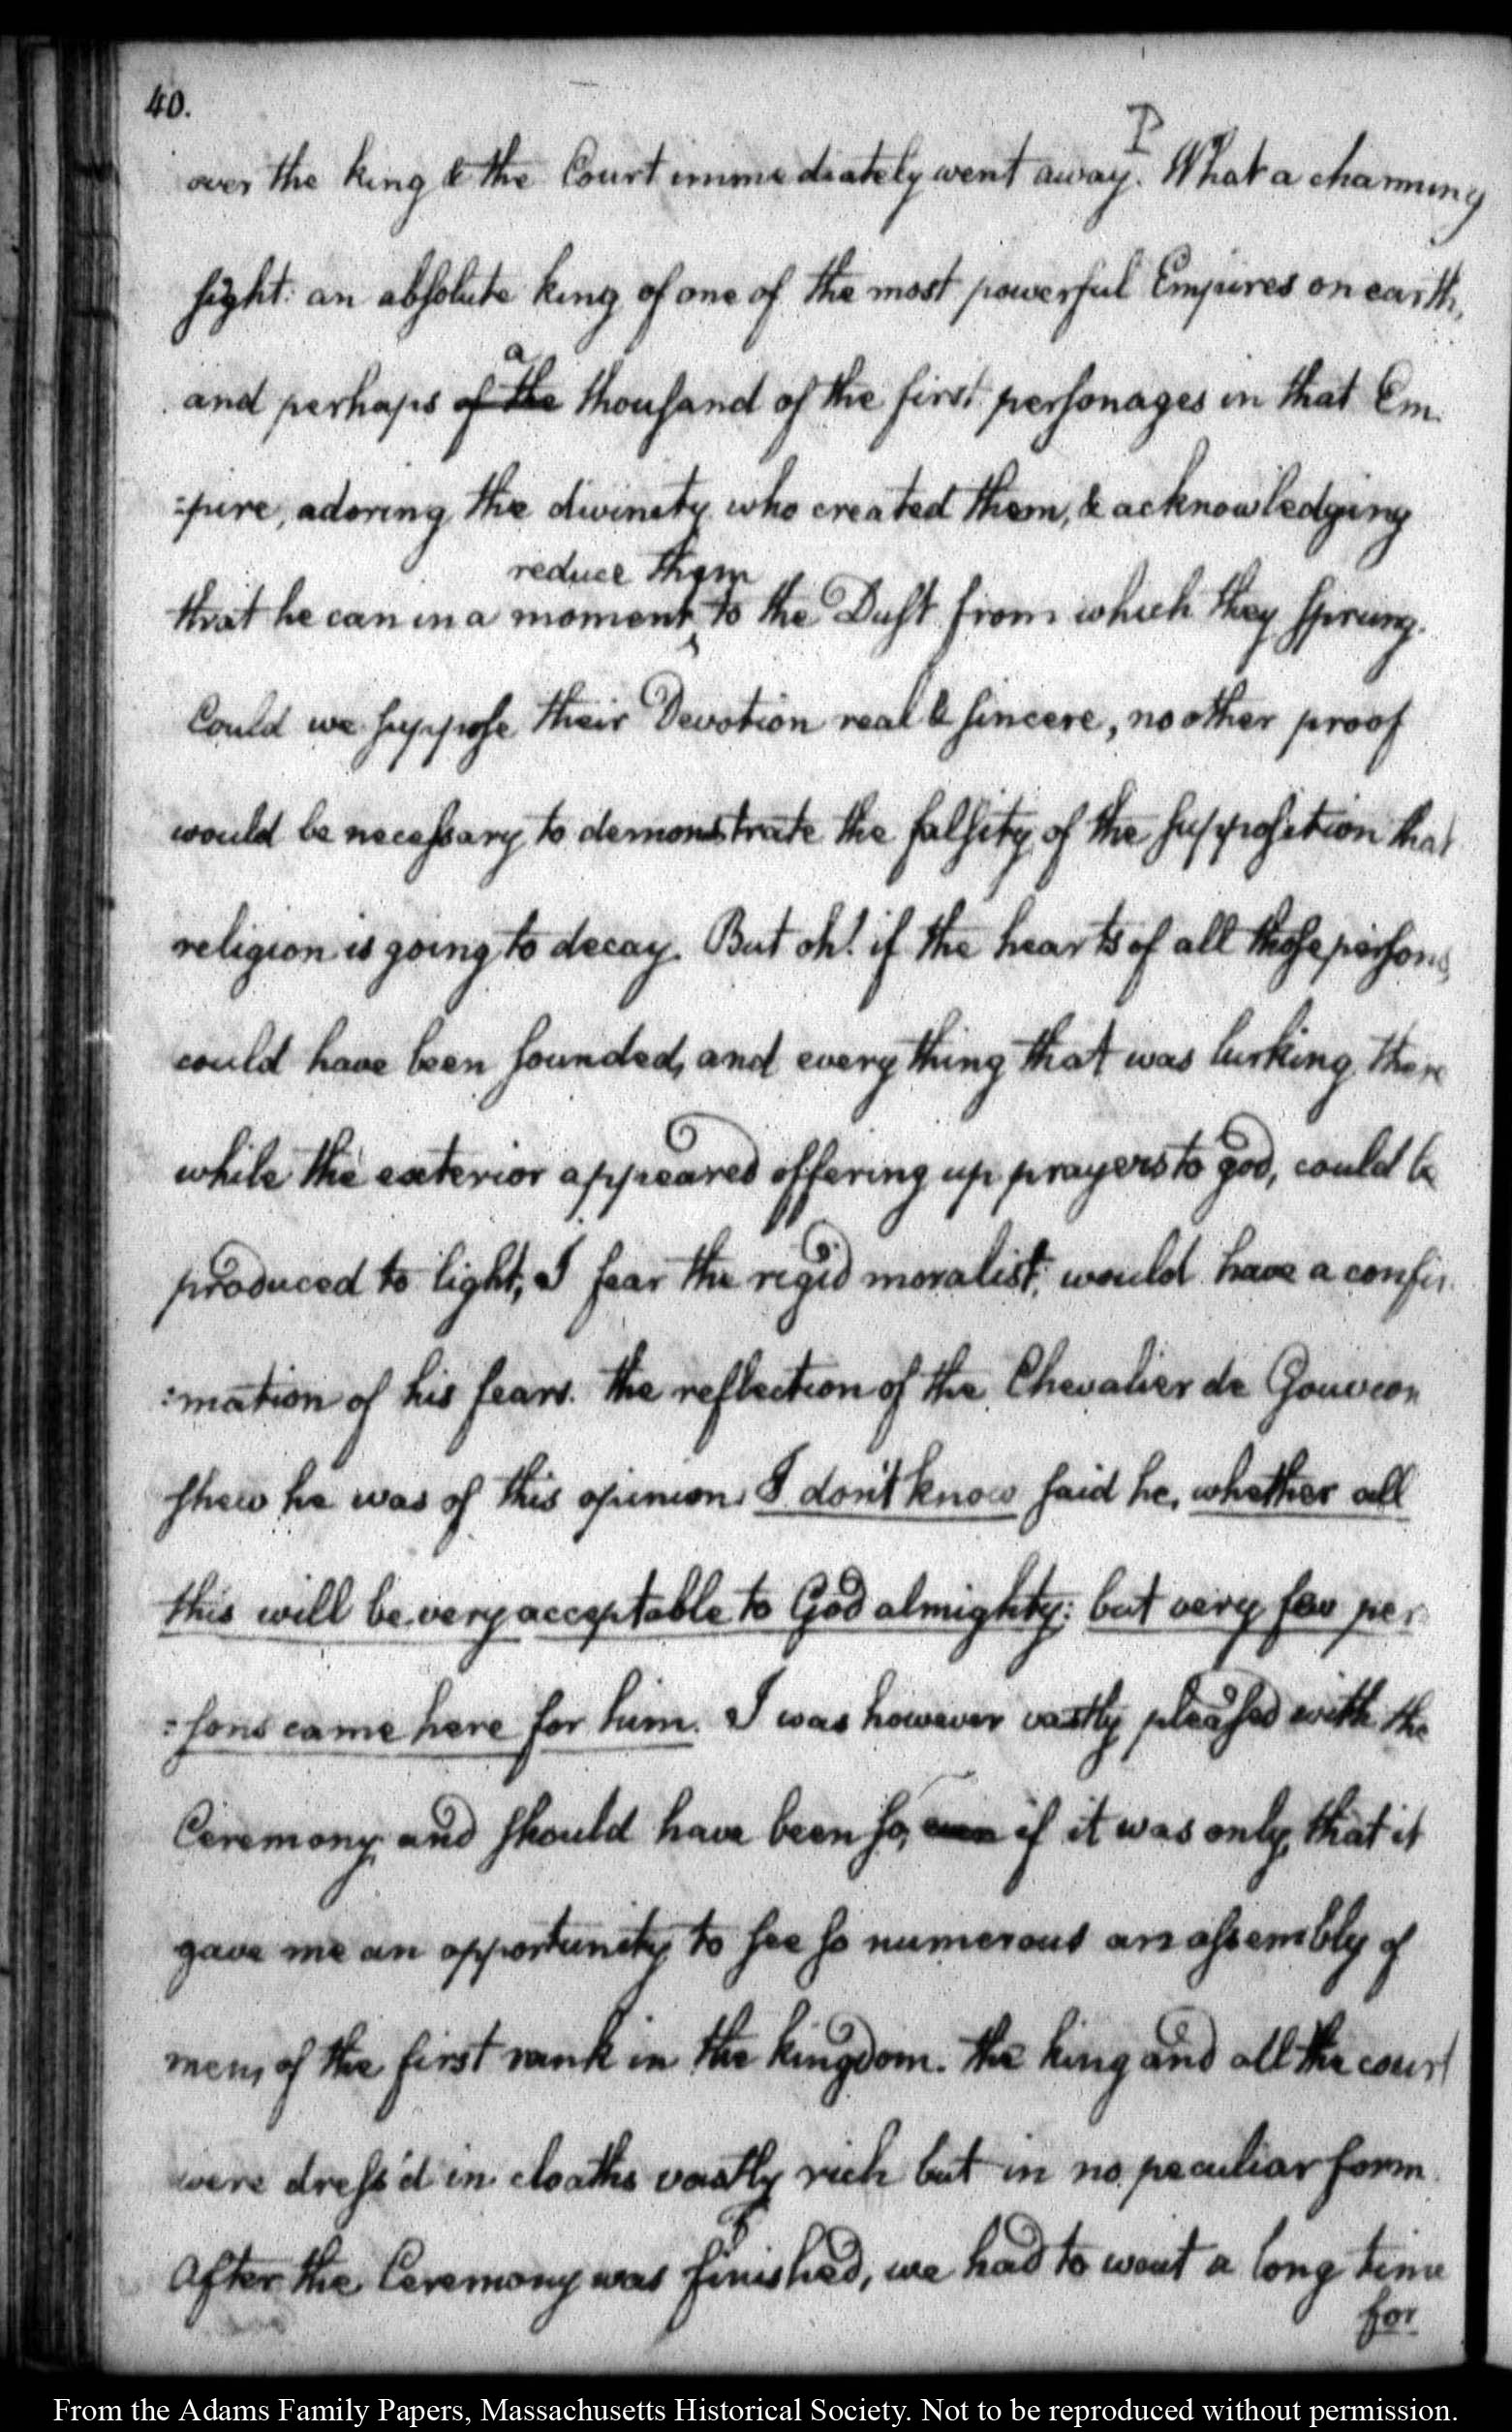 40.
P
over the king & the Court immediately went away. What a charming
sight: an absolute king of one of the most powerful Empires on earth,
a
and perhaps of the thousand of the first personages in that Em-
=pire, adoring the divinity who created them, & acknowledging
reduce them
that he can in a moment ^ to the Dust from which they sprung.
Could we suppose their Devotion real & sincere, no other proof
would be necessary to demonstrate the falsity of the supposition that
religion is going to decay. But oh! if the hearts of all those persons,
could have been sounded, and every thing that was lurking there
while the exterior appeared offering up prayers to god, could be
produced to light, I fear the rigid moralist, would have a confir-
=mation of his fears. the reflection of the Chevalier de Gouvion
shew he was of this opinion. I don't know said he, whether all
this will be very acceptable to God almighty: but very few per-
=sons came here for him. I was however vastly pleased with the
Ceremony and should have been so, even if it was only, that it
gave me an opportunity to see so numerous an assembly of
men, of the first rank in the kingdom. the king and all the court
were dress'd in cloaths vastly rich but in no peculiar form.
After the Ceremony was finished, we had to wait a long time
for
From the Adams Family Papers, Massachusetts Historical Society. Not to be reproduced without permission.